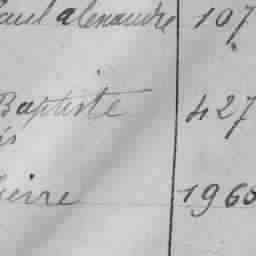 Paul alexandre 107
Baptiste 427
is
ierre 1960